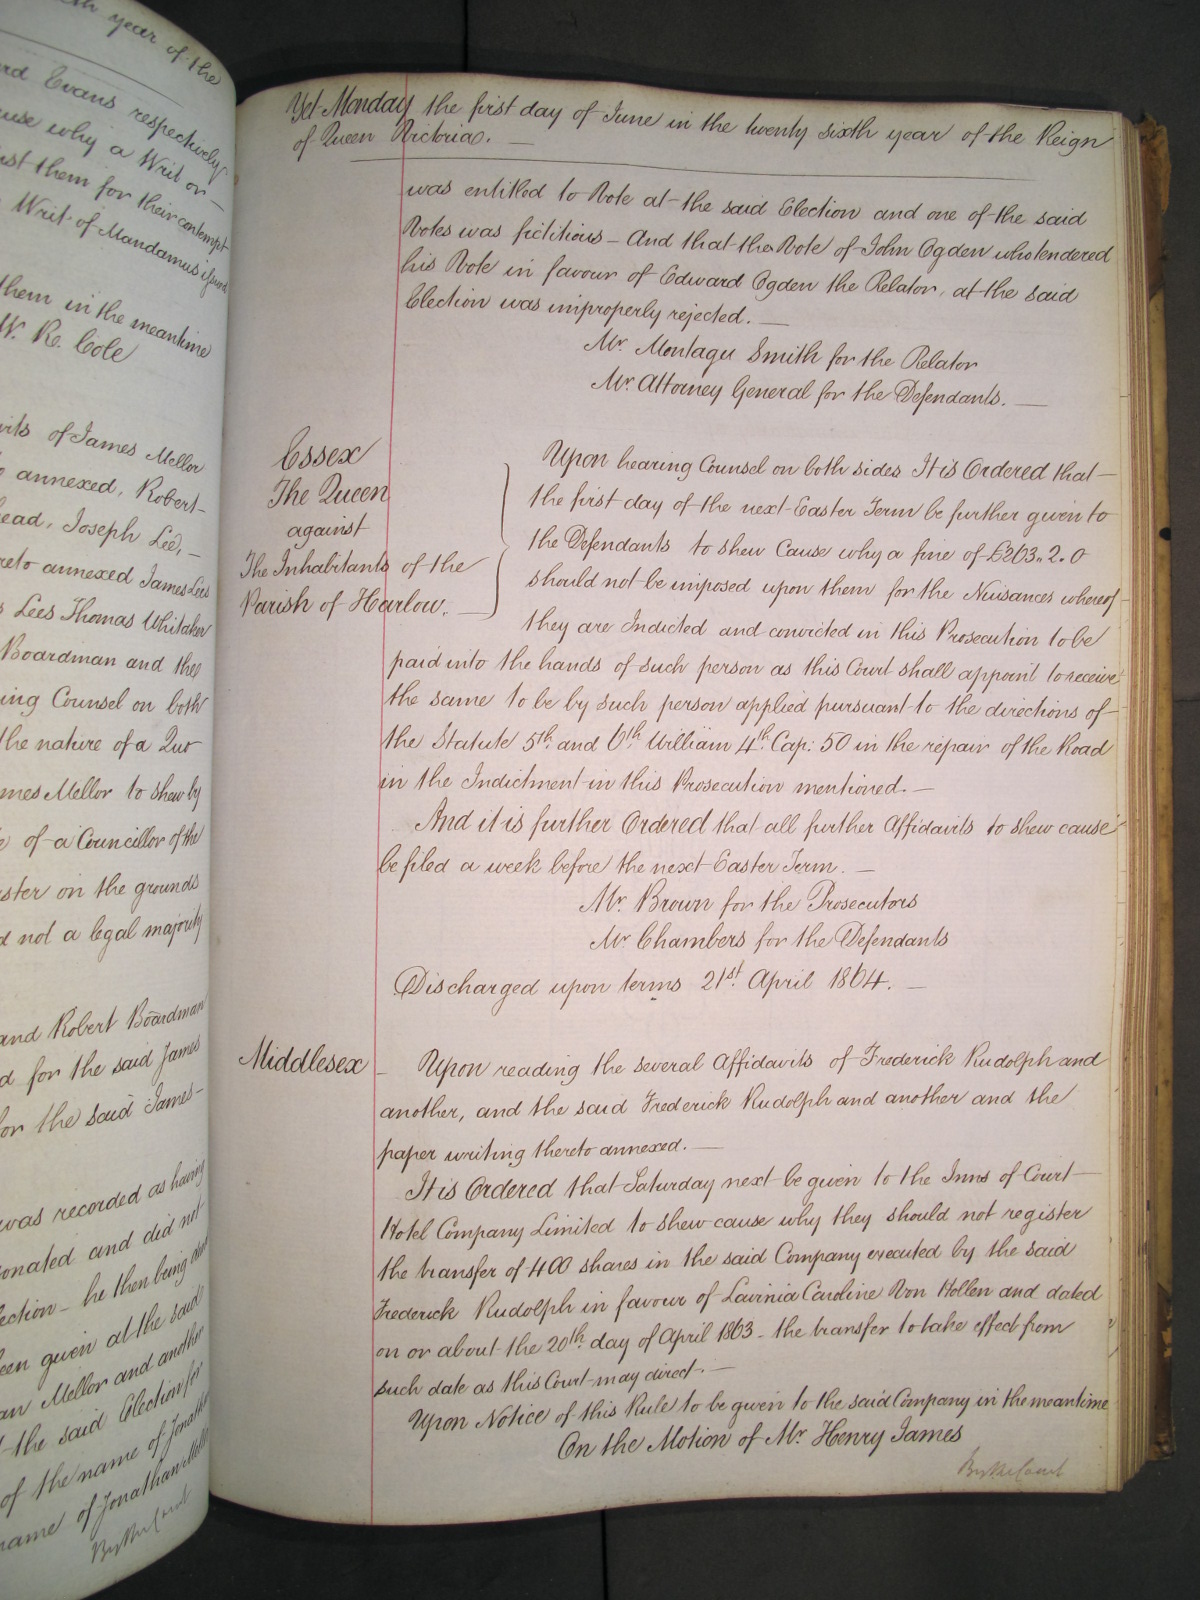 year of the
Evans respectively
cause why a Writ or
against them for their contempt
Writ of Mandamus
them in the meantime
W. R. Cole
of James Mellor
annexed, Robert
Joseph Lee,
annexed James Lees
Lees Thomas Whitaker
Boardman and the
Counsel on both
the nature of a Quo
James Mellor to shew by
of a Councillor of the
on the grounds
not a legal majority
and Robert Boardman
for the said James
for the said James
was recorded as having
and did not
Election he then being
been given at the said
Mellor and another
the said Election for
of the name of Jonathan
name of Jonathan
By the Court
Yet Monday the first day of June in the twenty sixth year of the Reign
of Queen Victoria. —
was entitled to Vote at the said Election and one of the said
Votes was fictitious — And that the Vote of John Ogden who tendered
his Vote in favour of Edward Ogden the Relator, at the said
Election was improperly rejected. —
Mr. Montagu Smith for the Relator
Mr. Attorney General for the Defendants. —
Essex
The Queen
against
The Inhabitants of the
Parish of Harlow. —
Upon hearing Counsel on both sides It is Ordered that
the first day of the next Easter Term be further given to
the Defendants to shew Cause why a fine of £263.. 2. 0
should not be imposed upon them for the Nuisances whereof
they are Indicted and convicted in this Prosecution to be
paid into the hands of such person as this Court shall appoint to receive
the same to be by such person applied pursuant to the directions of
the Statute 5th. and 6th. William 4th. Cap: 50 in the repair of the Road
in the Indictment in this Prosecution mentioned. —
And it is further Ordered that all further Affidavits to shew cause
be filed a week before the next Easter Term. —
Mr. Brown for the Prosecutors
Mr Chambers for the Defendants
Discharged upon terms 21st. April 1864. —
Middlesex — Upon reading the several Affidavits of Frederick Rudolph and
another, and the said Frederick Rudolph and another and the
paper writing thereto annexed. —
It is Ordered that Saturday next be given to the Inns of Court
Hotel Company Limited to shew cause why they should not register
the transfer of 400 shares in the said Company executed by the said
Frederick Rudolph in favour of Lavinia Caroline Von Hollen and dated
on or about the 20th. day of April 1863 - the transfer to take effect from
such date as this Court may direct. —
Upon Notice of this Rule to be given to the said Company in the meantime
On the Motion of Mr. Henry James
By the Court